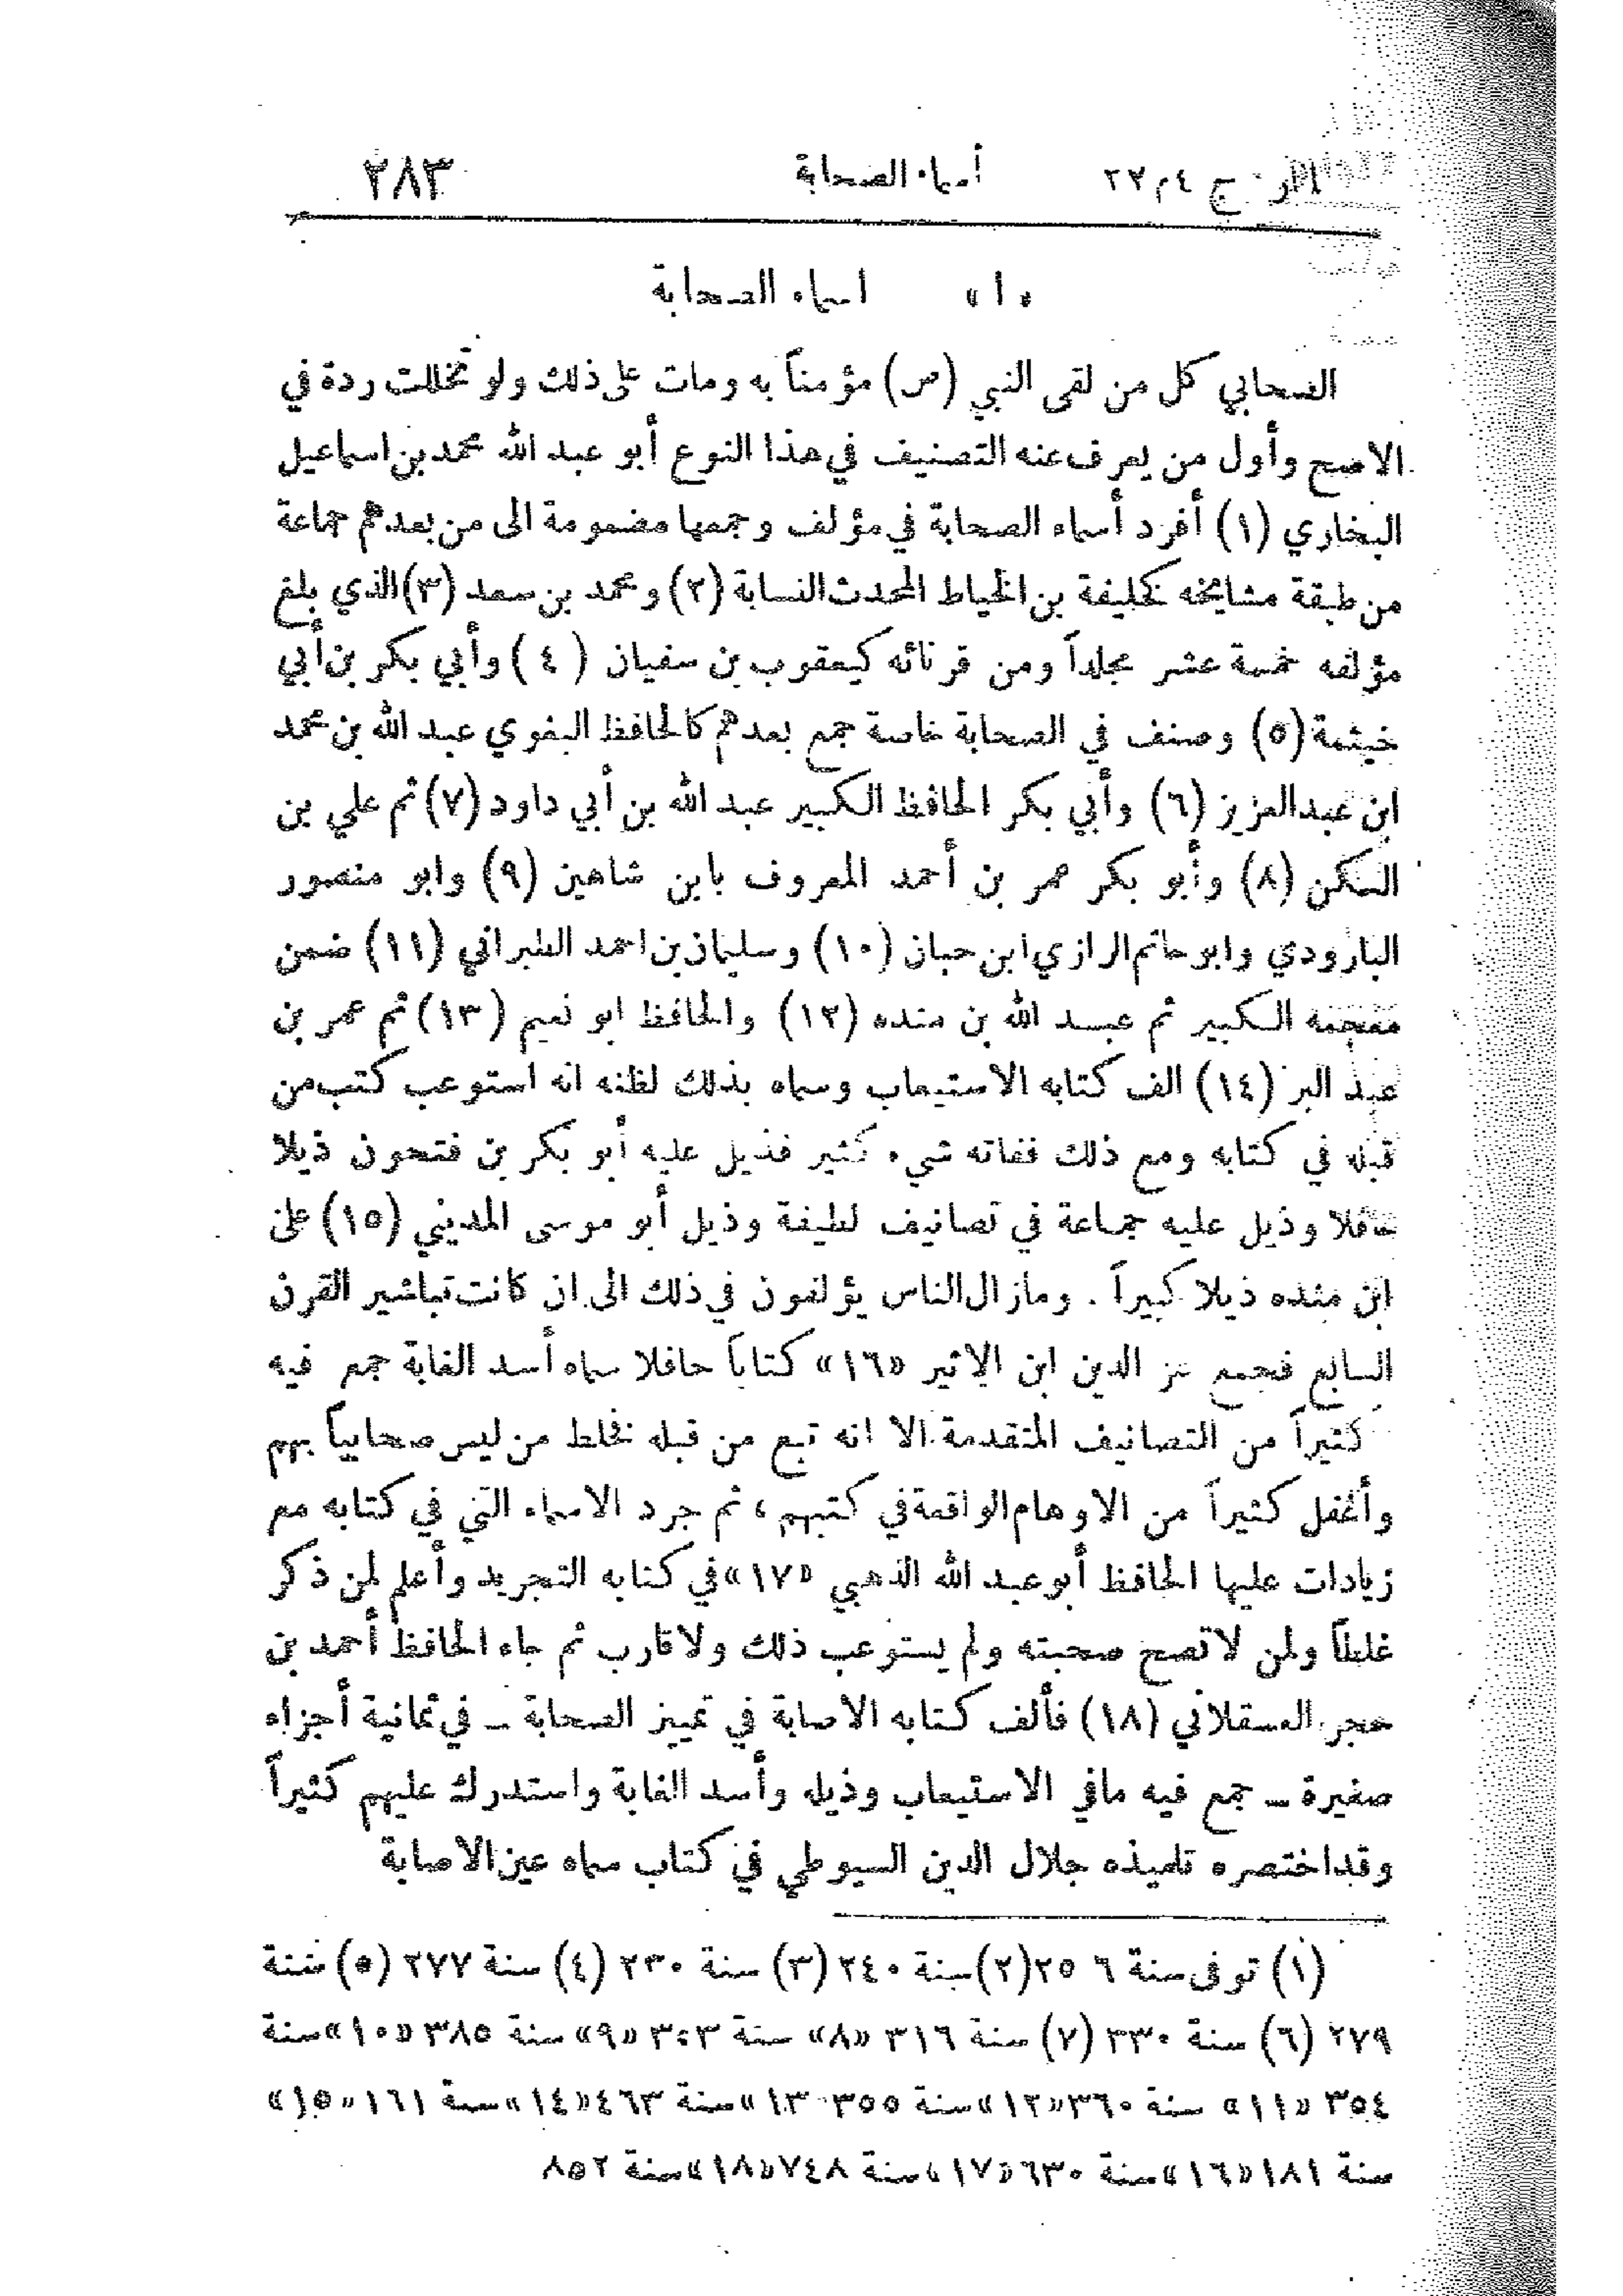 ج ٤ م ٢٢ أسماء الصحابة ٢٨٣
« ا » اسماء الصحابة
الصحابي كل من لقى النبي (ص) مؤمناً به ومات على ذلك ولو تخللت ردة في
الاصح وأول من يعرف عنه التصنيف في هذا النوع أبو عبد الله محمد بن اسماعيل
البخاري (١) أفرد أسماء الصحابة في مؤلف وجمعها مضمومة الى من بعدهم جماعة
من طبقة مشايخه كخليفة بن الخياط المحدث النسابة (٢) ومحمد بن سعد (٣) الذي بلغ
مؤلفه خمسة عشر مجلداً ومن قرنائه كيعقوب بن سفيان (٤) وأبي بكر بن أبي
خيثمة (٥) وصنف في الصحابة خاصة جمع بعدهم كالحافظ البغوي عبد الله بن محمد
ابن عبد العزيز (٦) وأبي بكر الحافظ الكبير عبد الله بن أبي داود (٧) ثم علي بن
السكن (٨) وأبو بكر عمر بن أحمد المعروف بابن شاهين (٩) وابو منصور
البارودي وابو حاتم الرازي ابن حبان (١٠) وسليمان بن احمد الطبراني (١١) ضمن
معجمه الكبير ثم عبد الله بن منده (١٢) والحافظ ابو نعيم (١٣) ثم عمر بن
عبد البر (١٤) الف كتابه الاستيعاب وسماه بذلك لظنه انه استوعب كتب من
قبله في كتابه ومع ذلك ففاته شيء كثير فذيل عليه أبو بكر بن فتحون ذيلا
حافلا وذيل عليه جماعة في تصانيف لطيفة وذيل أبو موسى المديني (١٥) على
ابن منده ذيلا كبيراً . ومازال الناس يؤلفون في ذلك الى ان كانت تباشير القرن
السابع فجمع عز الدين ابن الاثير «١٦» كتاباً حافلا سماه أسد الغابة جمع فيه
كثيراً من التصانيف المتقدمة الا انه تبع من قبله فخلط من ليس صحابياً بهم
وأغفل كثيراً من الاوهام الواقعة في كتبهم ، ثم جرد الاسماء التي في كتابه مع
زيادات عليها الحافظ أبو عبد الله الذهبي «١٧» في كتابه التجريد وأعلم لمن ذكر
غلطاً ولمن لا تصح صحبته ولم يستوعب ذلك ولا قارب ثم جاء الحافظ أحمد بن
حجر العسقلاني (١٨) فألف كتابه الاصابة في تمييز الصحابة ــ في ثمانية أجزاء
صغيرة ــ جمع فيه مافي الاستيعاب وذيله وأسد الغابة واستدرك عليهم كثيراً
وقد اختصره تلميذه جلال الدين السيوطي في كتاب سماه عين الاصابة
(١) توفى سنة ٢٥٦ (٢) سنة ٢٤٠ (٣) سنة ٢٣٠ (٤) سنة ٢٧٧ (٥) سنة
٢٧٩ (٦) سنة ٣٣٠ (٧) سنة ٣١٦ «٨» سنة ٣٥٣ «٩» سنة ٣٨٥ «١٠» سنة
٣٥٤ «١١» سنة ٣٦٠ «١٢» سنة ٣٥٥ ١٣» سنة ٤٦٣ «١٤» سنة ١٦١ «١٥»
سنة ١٨١ «١٦» سنة ٦٣٠ «١٧» سنة ٧٤٨ «١٨» سنة ٨٥٢